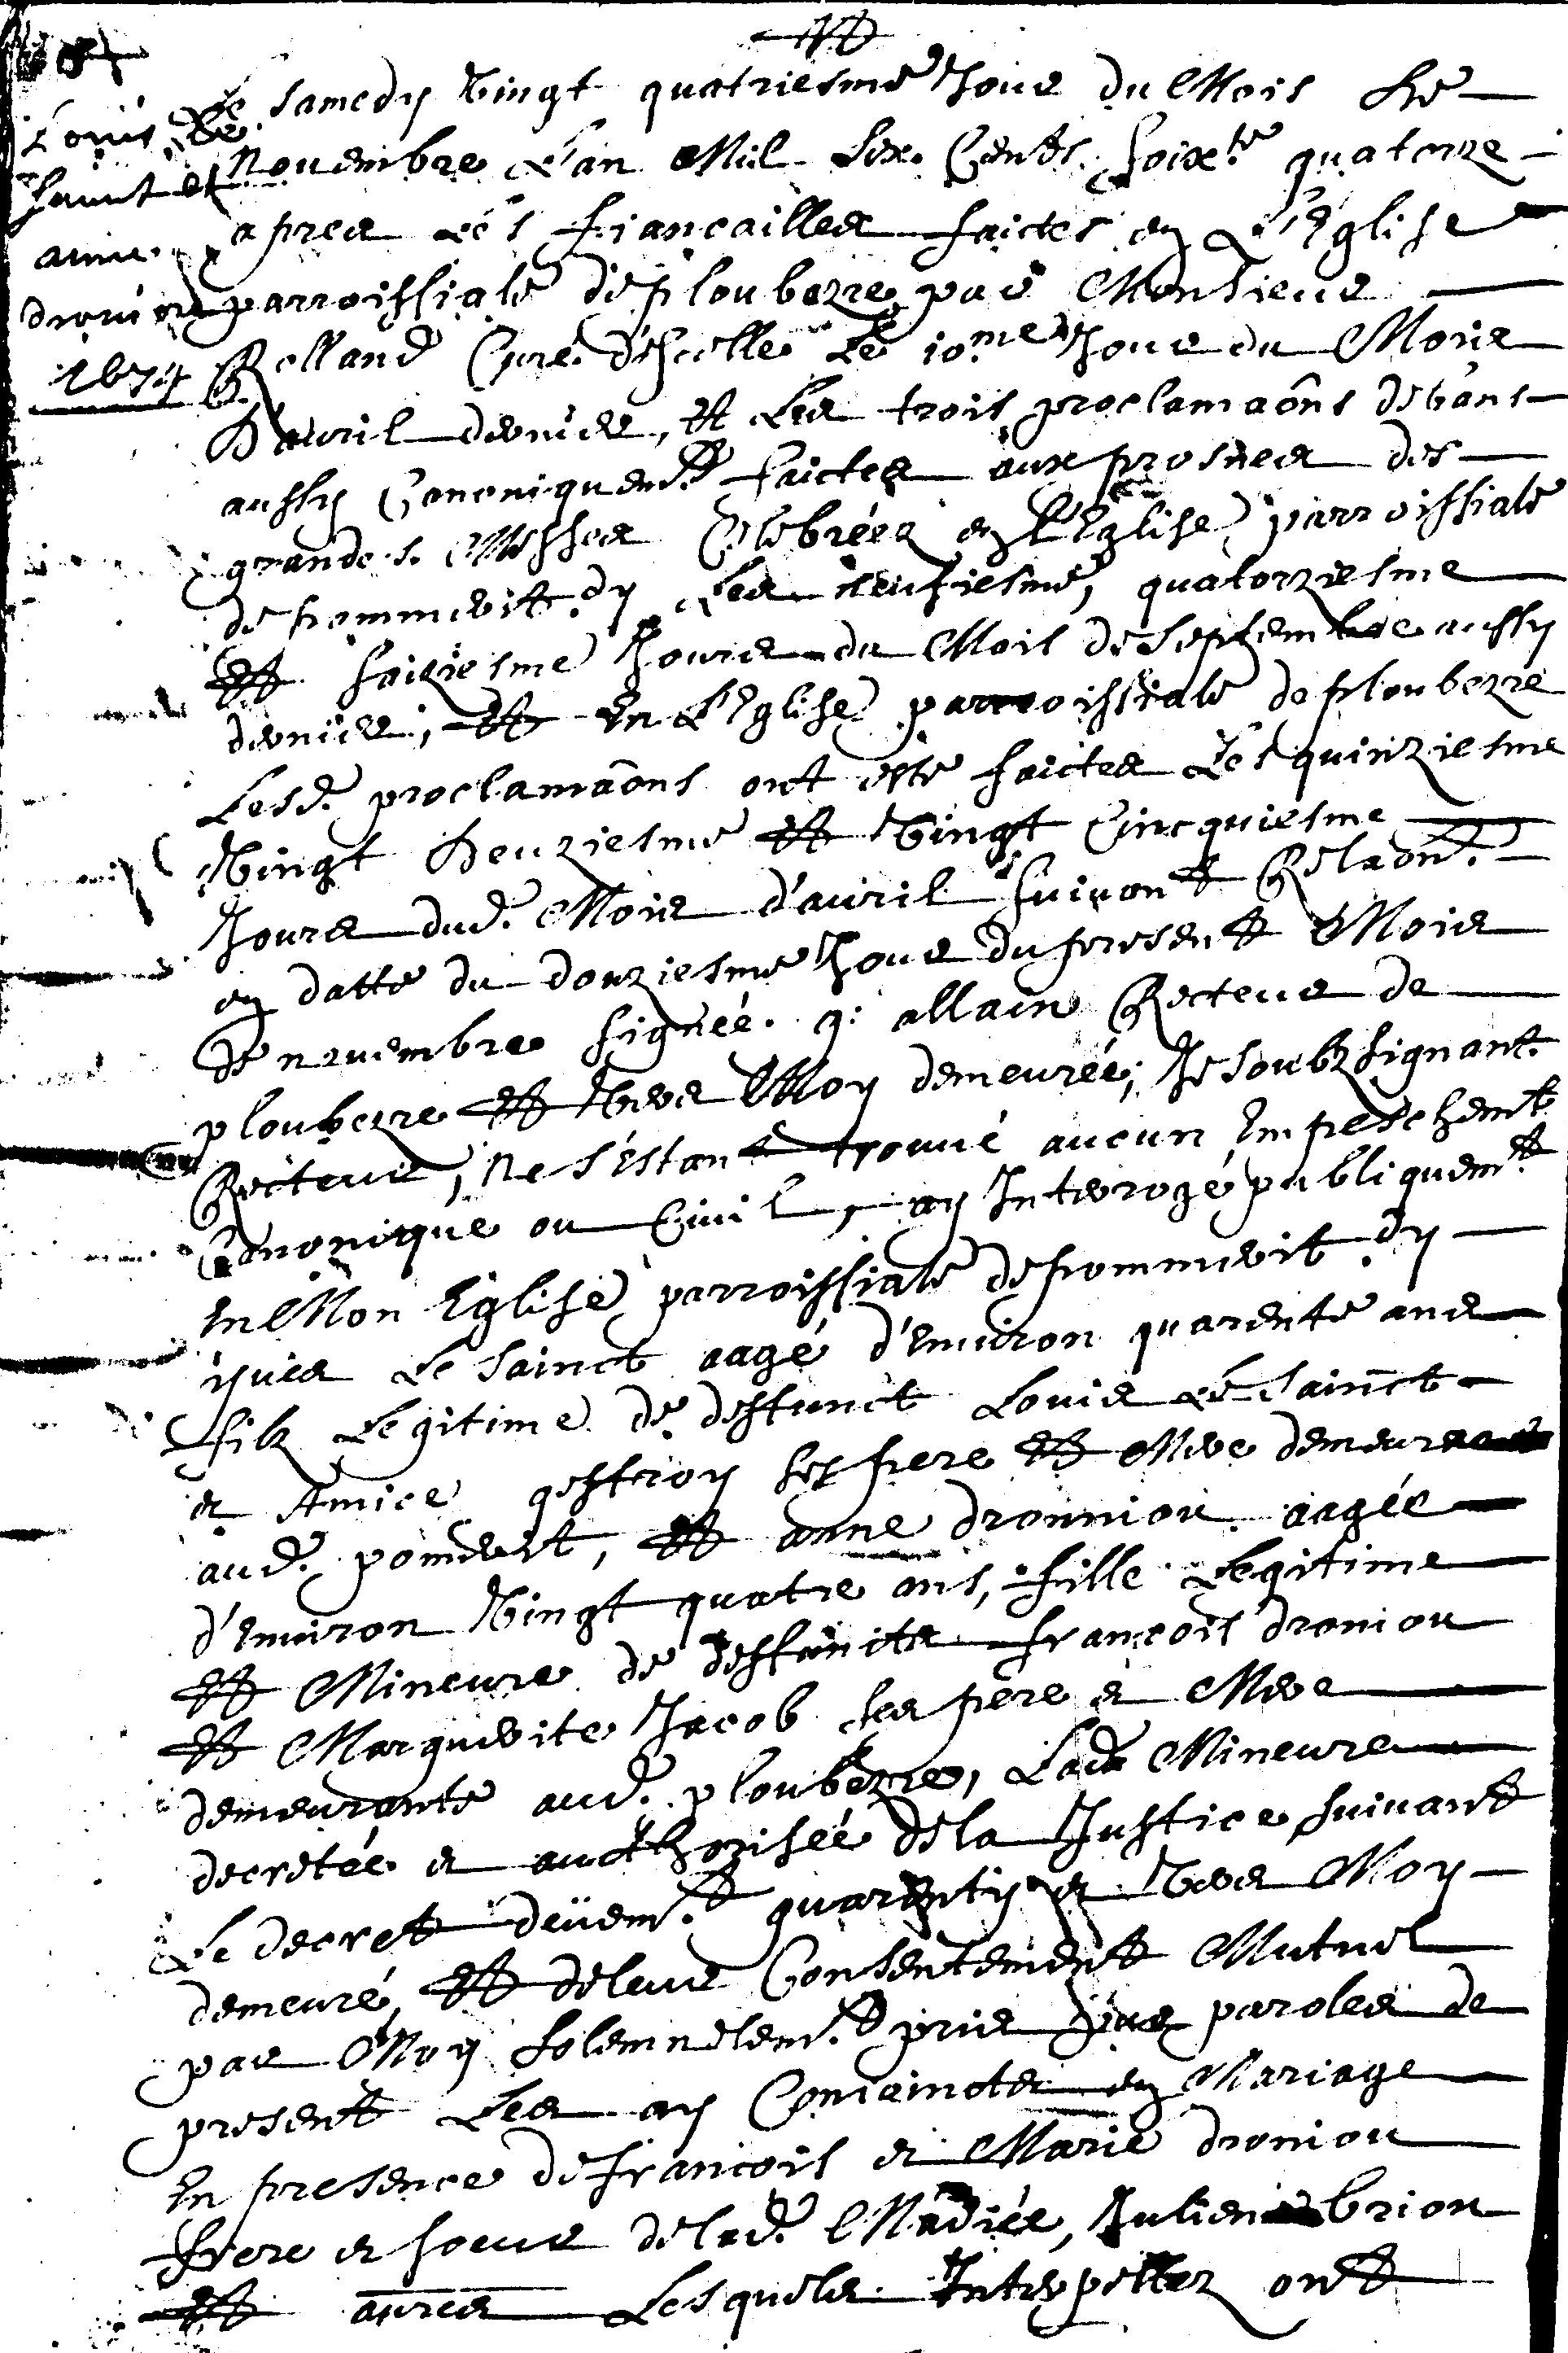 Louis Le
Sainct et
anne
droniou
1674
Le samedy vingt quatriesme Jour du Mois de
novembre L'an Mil Six Cents Soixte quatorze
apres Les fiancailles faictes en L'Eglise
parroissiale de ploubezre par Monsieur
Rolland Curé d'Icelle Le 10me Jour du Mois
D'auril dernier, et Les trois proclamaõns de bans
aussy Canoniquemt faictes aux prosnes des
grandes Messes Celebrées en L'Eglise parroissiale
de pommerit Les neufiesme, quatorziesme
et saiziesme Jours du Mois de Septembre aussy
dernier, et En L'Eglise parroissiale de ploubezre
Lesd. proclamaõns ont esté faictes Les quinziesme
Vingt Deuziesme et Vingt Cincquiesme
Jours dud. Mois d'auril suivant Relaõn
en datte du douziesme Jour du present Mois
de novembre signée. g: allain Recteur de
ploubezre et Vers Moy demeurée; Je soubzsignant
Recteur, Ne s'Estant trouué aucun Empeschemt
Canonique ou Ciuil, ay Interrogé publiquemt
En Mon Eglise parroissiale de pommerit
yues Le Sainct aagé d'Enuiron quarente ans
filz Legitime de deffunct Louis Le Sainct
et Amice geffroy ses pere et Mere demeurant
aud. pomerit, et anne dronniou aagée
d'Enuiron Vingt quatre ans, fille Legitime
et Mineure de deffuncts francois droniou
et Marguerite Jacob ses pere et Mere
demeurante aud. ploubezre, Lad. Mineure
decretée et aucthorisée de la Justice suivant
Le decret deüemt garenty et Vers Moy
demeuré, et de leur Consentement Mutuel
par Moy Solemnelemt pris par paroles de
present Les ay Conioincts en Mariage
En presence de francois et Marie droniou
frere et soeur de lad. Mariée, Julien brion
et aũres Lesquels Interpellez ont